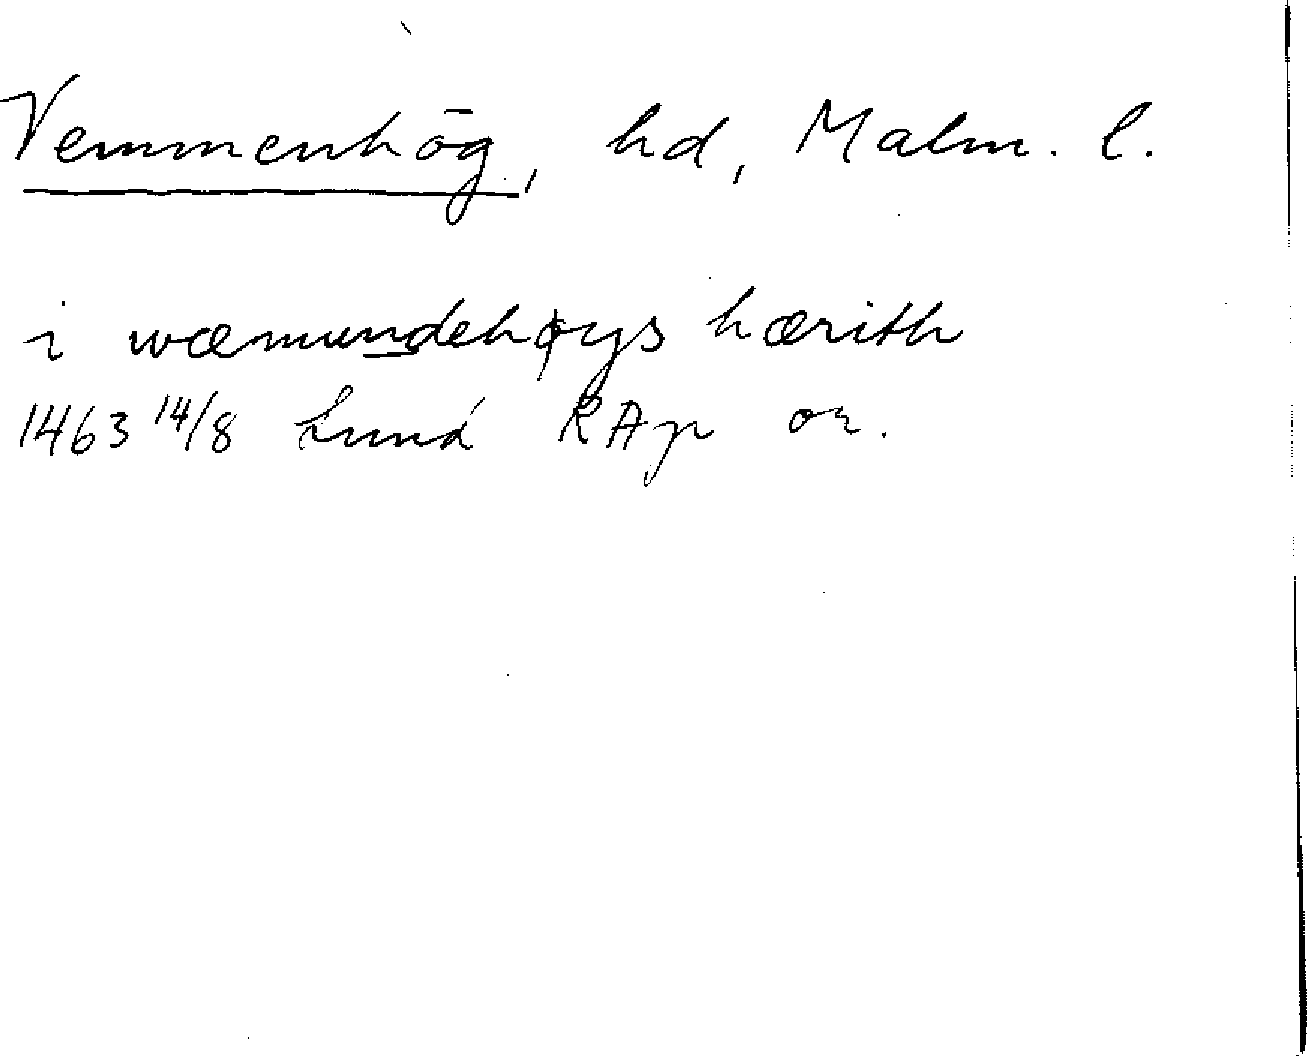 Vemmenhög, hd, Malm. l.
i wæmundehøys hærith
1463 14/8 Lund RAp or.